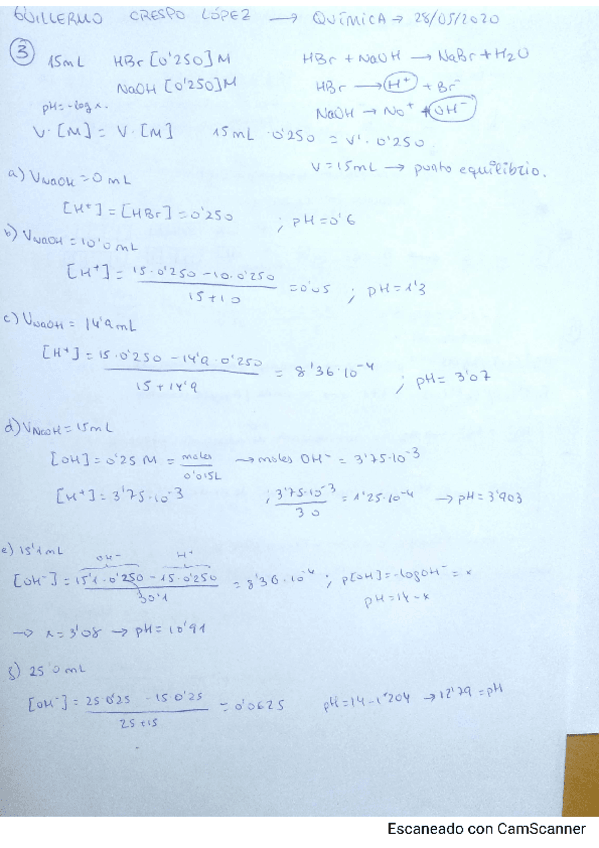 GUILLERMO CRESPO LÓPEZ → QUÍMICA → 28/05/2020
③ 15mL HBr [0'250]M HBr + NaOH → NaBr + H2O
NaOH [0'250]M HBr → H+ + Br-
pH=-log x. NaOH → Na+ + OH-
V·[M] = V·[M] 15mL·0'250 = V'·0'250
V=15mL → punto equilibrio.
a) VNaOH=0mL
[H+]=[HBr]=0'250 ; pH=0'6
b) VNaOH=10'0mL
[H+] = 15·0'250-10·0'250 / 15+10 =0'05 ; pH=1'3
c) VNaOH= 14'9mL
[H+] = 15·0'250-14'9·0'250 / 15+14'9 = 8'36·10-4 ; pH= 3'07
d) VNaOH=15mL
[OH]=0'25 M = moles / 0'015L → moles OH- = 3'75·10-3
[H+]=3'75·10-3 ; 3'75·10-3 / 30 =1'25·10-4 → pH=3'903
e) 15'1mL
OH- H+
[OH-] = 15'1·0'250-15·0'250 / 30'1 = 8'36·10-4 ; p[OH]=-logOH- = x
pH=14-x
→ x=3'08 → pH=10'91
f) 25'0mL
[OH-] = 25·0'25 - 15·0'25 / 25+15 = 0'0625 pH=14-1'204 → 12'79=pH
Escaneado con CamScanner